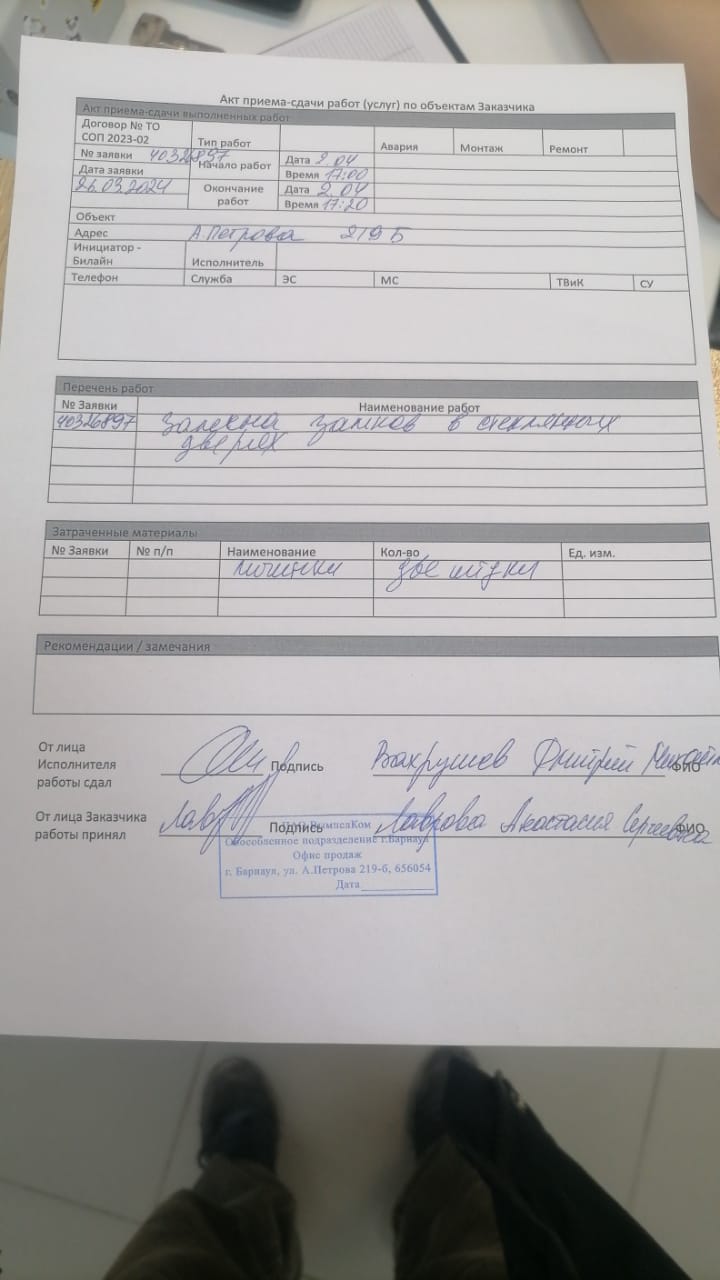 Акт приема-сдачи работ (услуг) по объектам Заказчика
Акт приема-сдачи выполненных работ
Договор № ТО СОП 2023-02
Тип работ
Авария
Монтаж
Ремонт
№ заявки 40326897
Начало работ
Дата 2.04
Время 17:00
Дата заявки
26.03.2024
Окончание работ
Дата 2.04
Время 17:20
Объект
Адрес А.Петрова 219Б
Инициатор - Билайн
Исполнитель
Телефон
Служба
ЭС
МС
ТВиК
СУ
Перечень работ
№ Заявки
Наименование работ
40326897
замков в стеклянных
дверях
Затраченные материалы
№ Заявки
№ п/п
Наименование
Кол-во
Ед. изм.
две штуки
Рекомендации / замечания
От лица
Исполнителя
работы сдал
Подпись
Вахрушев Дмитрий
ФИО
От лица Заказчика
работы принял
Подпись
Лаврова Анастасия Сергеевна
ФИО
ПАО ВымпелКом
Обособленное подразделение г.Барнаул
Офис продаж
г. Барнаул, ул. А.Петрова 219-б, 656054
Дата